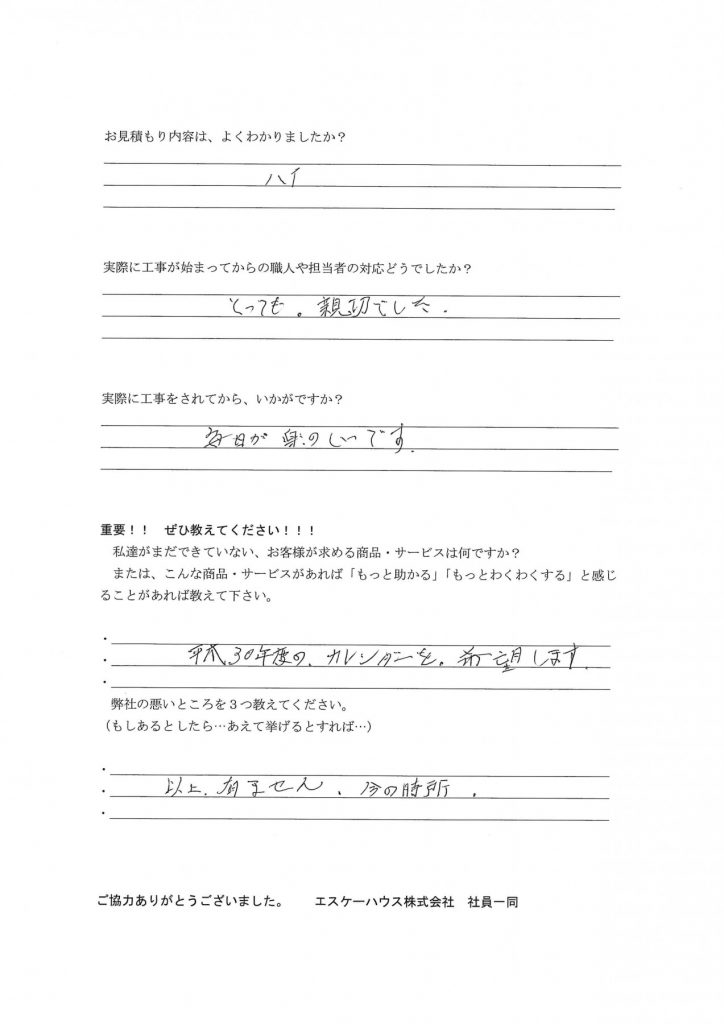 お見積もり内容は、よくわかりましたか？
ハイ
実際に工事が始まってからの職人や担当者の対応どうでしたか？
とっても。親切でした．
実際に工事をされてから、いかがですか？
毎日が楽のしいです．
重要！！　ぜひ教えてください！！！
私達がまだできていない、お客様が求める商品・サービスは何ですか？
または、こんな商品・サービスがあれば「もっと助かる」「もっとわくわくする」と感じ
ることがあれば教えて下さい。
・
・平成30年度の、カレンダーを。希望します．
・
弊社の悪いところを３つ教えてください。
（もしあるとしたら…あえて挙げるとすれば…）
・
・以上．有ません、今の時所．
・
ご協力ありがとうございました。　エスケーハウス株式会社　社員一同